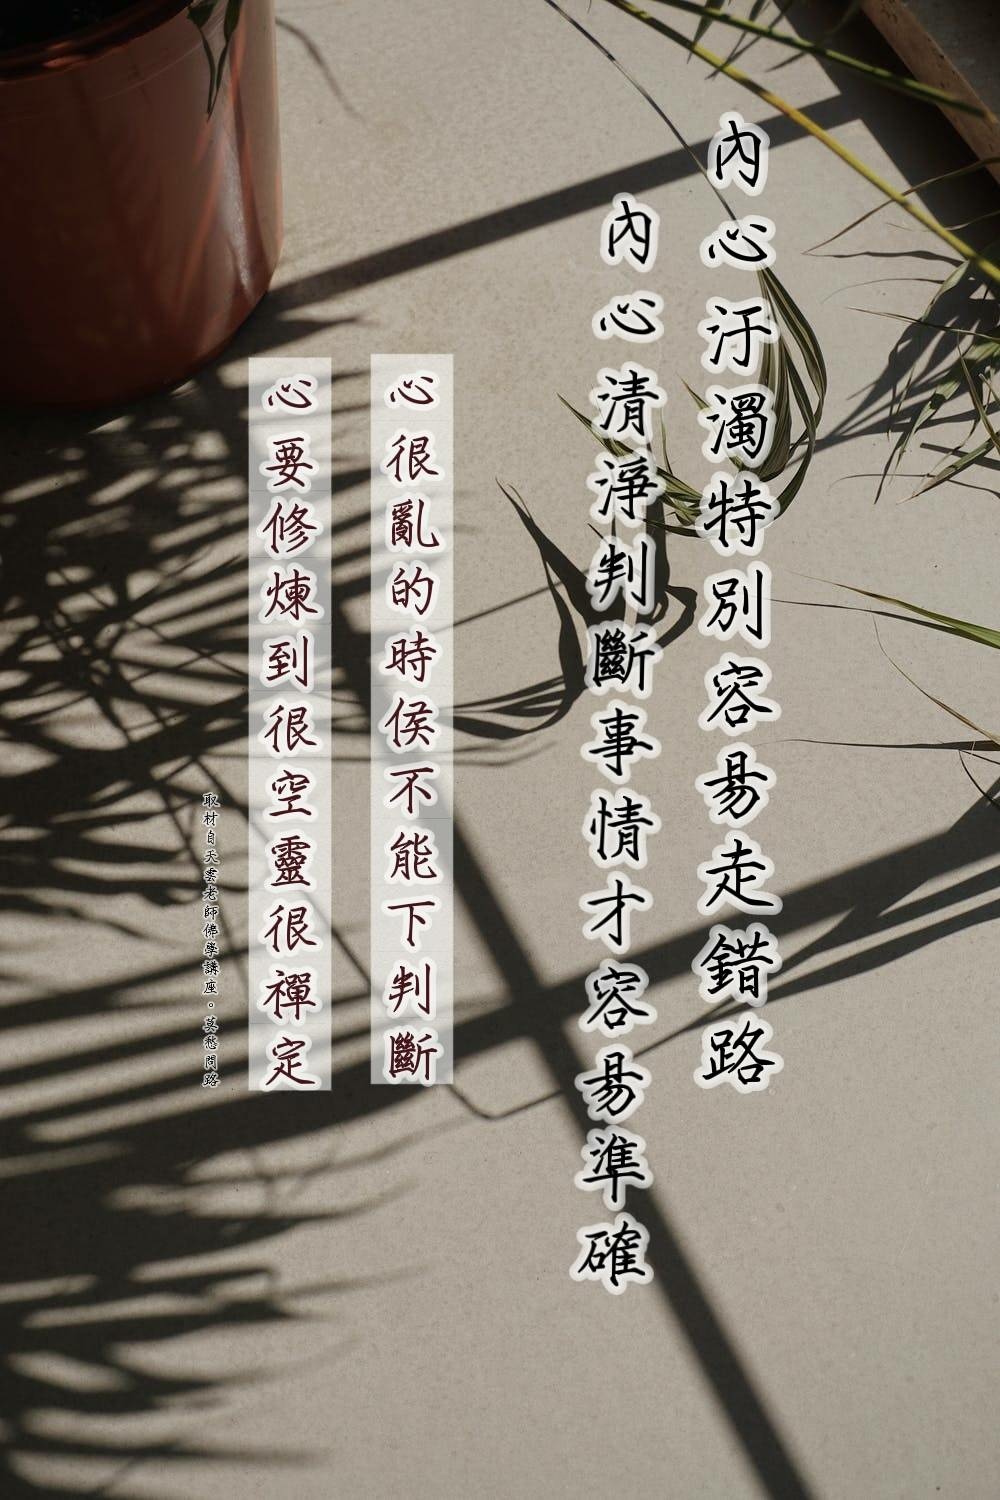 內心汙濁特別容易走錯路
內心清淨判斷事情才容易準確
心很亂的時侯不能下判斷
心要修煉到很空靈很禪定
取材自天雲老師佛學講座。莫愁問路